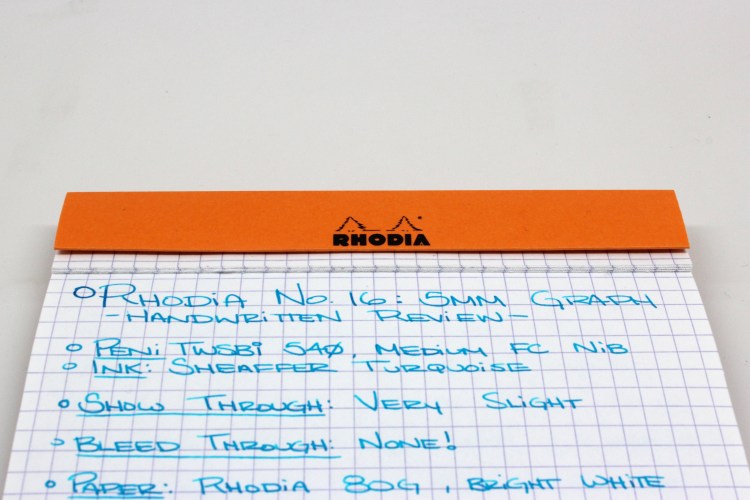 RHODIA
RHODIA No. 16: 5MM GRAPH
-HANDWRITTEN REVIEW-
PEN: TWSBI 540, MEDIUM FC NIB
INK: SHEAFFER TURQUOISE
SHOW THROUGH: VERY SLIGHT
BLEED THROUGH: NONE!
PAPER: RHODIA 80G, BRIGHT WHITE